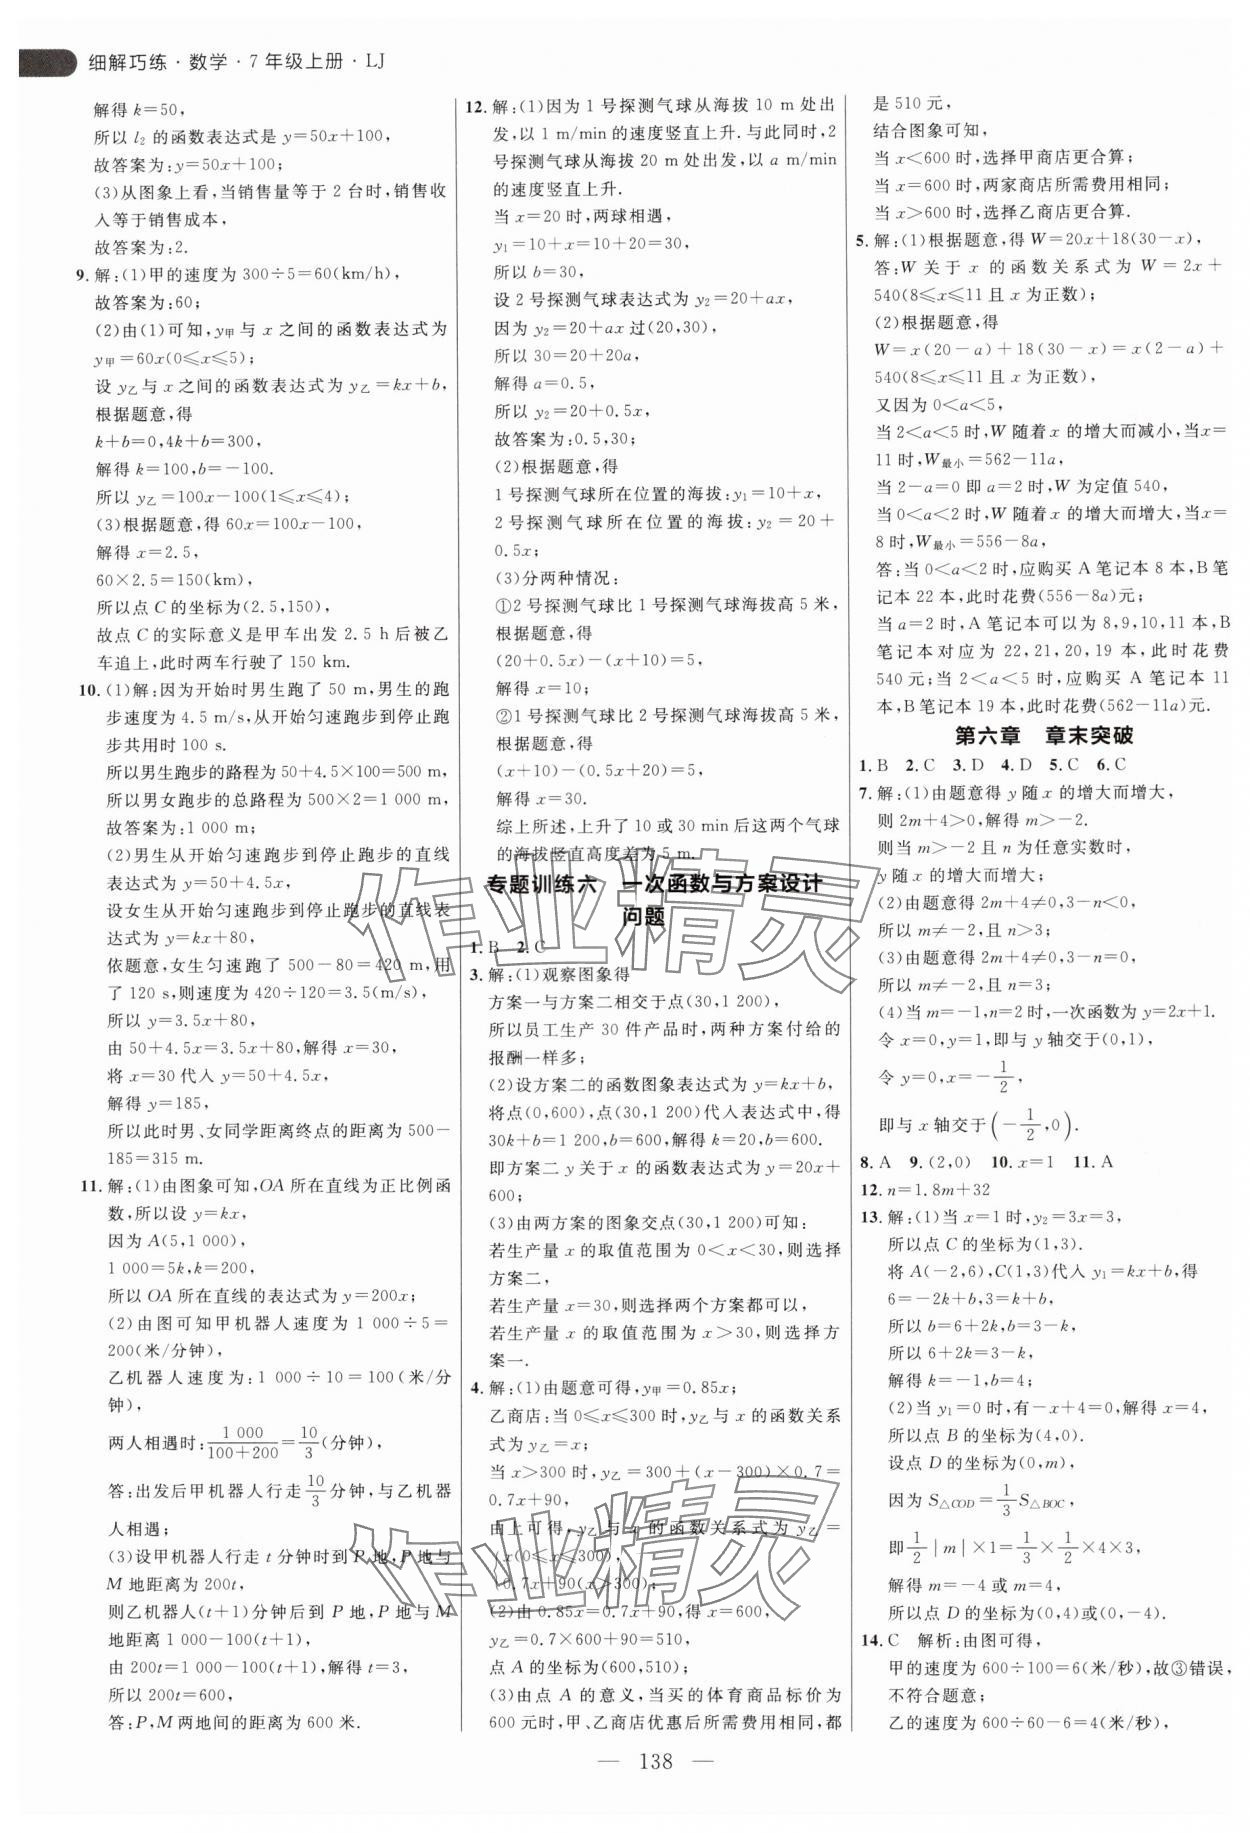 细解巧练·数学·7年级上册·LJ
解得 k=50,
所以 l₂ 的函数表达式是 y=50x+100,
故答案为:y=50x+100;
(3)从图象上看,当销售量等于 2 台时,销售收
入等于销售成本,
故答案为:2.
9. 解:(1)甲的速度为 300÷5=60(km/h),
故答案为:60;
(2)由(1)可知,y甲与 x 之间的函数表达式为
y甲=60x(0≤x≤5);
设 y乙与 x 之间的函数表达式为 y乙=kx+b,
根据题意,得
k+b=0,4k+b=300,
解得 k=100,b=-100.
所以 y乙=100x-100(1≤x≤4);
(3)根据题意,得 60x=100x-100,
解得 x=2.5,
60×2.5=150(km),
所以点 C 的坐标为(2.5,150),
故点 C 的实际意义是甲车出发 2.5 h 后被乙
车追上,此时两车行驶了 150 km.
10. (1)解:因为开始时男生跑了 50 m,男生的跑
步速度为 4.5 m/s,从开始匀速跑步到停止跑
步共用时 100 s.
所以男生跑步的路程为 50+4.5×100=500 m,
所以男女跑步的总路程为 500×2=1 000 m,
故答案为:1 000 m;
(2)男生从开始匀速跑步到停止跑步的直线
表达式为:y=50+4.5x,
设女生从开始匀速跑步到停止跑步的直线表
达式为 y=kx+80,
依题意,女生匀速跑了 500-80=420 m,用
了 120 s,则速度为 420÷120=3.5(m/s),
所以 y=3.5x+80,
由 50+4.5x=3.5x+80,解得 x=30,
将 x=30 代入 y=50+4.5x,
解得 y=185,
所以此时男、女同学距离终点的距离为 500-
185=315 m.
11. 解:(1)由图象可知,OA 所在直线为正比例函
数,所以设 y=kx,
因为 A(5,1 000),
1 000=5k,k=200,
所以 OA 所在直线的表达式为 y=200x;
(2)由图可知甲机器人速度为 1 000÷5=
200(米/分钟),
乙机器人速度为:1 000÷10=100(米/分
钟),
两人相遇时:1 000/(100+200)=10/3(分钟),
答:出发后甲机器人行走10/3分钟,与乙机器
人相遇;
(3)设甲机器人行走 t 分钟时到 P 地,P 地与
M 地距离为 200t,
则乙机器人(t+1)分钟后到 P 地,P 地与 M
地距离 1 000-100(t+1),
由 200t=1 000-100(t+1),解得 t=3,
所以 200t=600,
答:P,M 两地间的距离为 600 米.
12. 解:(1)因为 1 号探测气球从海拔 10 m 处出
发,以 1 m/min 的速度竖直上升.与此同时,2
号探测气球从海拔 20 m 处出发,以 a m/min
的速度竖直上升.
当 x=20 时,两球相遇,
y₁=10+x=10+20=30,
所以 b=30,
设 2 号探测气球表达式为 y₂=20+ax,
因为 y₂=20+ax 过(20,30),
所以 30=20+20a,
解得 a=0.5,
所以 y₂=20+0.5x,
故答案为:0.5,30;
(2)根据题意,得
1 号探测气球所在位置的海拔:y₁=10+x,
2 号探测气球所在位置的海拔:y₂=20+
0.5x;
(3)分两种情况:
①2 号探测气球比 1 号探测气球海拔高 5 米,
根据题意,得
(20+0.5x)-(x+10)=5,
解得 x=10;
②1 号探测气球比 2 号探测气球海拔高 5 米,
根据题意,得
(x+10)-(0.5x+20)=5,
解得 x=30.
综上所述,上升了 10 或 30 min 后这两个气球
的海拔竖直高度差为 5 m.
专题训练六 一次函数与方案设计
问题
1. B 2. C
3. 解:(1)观察图象得
方案一与方案二相交于点(30,1 200),
所以员工生产 30 件产品时,两种方案付给的
报酬一样多;
(2)设方案二的函数图象表达式为 y=kx+b,
将点(0,600),点(30,1 200)代入表达式中,得
30k+b=1 200,b=600,解得 k=20,b=600.
即方案二 y 关于 x 的函数表达式为 y=20x+
600;
(3)由两方案的图象交点(30,1 200)可知:
若生产量 x 的取值范围为 0<x<30,则选择
方案二,
若生产量 x=30,则选择两个方案都可以,
若生产量 x 的取值范围为 x>30,则选择方
案一.
4. 解:(1)由题意可得,y甲=0.85x;
乙商店:当 0≤x≤300 时,y乙与 x 的函数关系
式为 y乙=x;
当 x>300 时,y乙=300+(x-300)×0.7=
0.7x+90,
由上可得,y乙与 x 的函数关系式为 y乙=
{x(0≤x≤300),
0.7x+90(x>300);
(2)由 0.85x=0.7x+90,得 x=600,
y乙=0.7×600+90=510,
点 A 的坐标为(600,510);
(3)由点 A 的意义,当买的体育商品标价为
600 元时,甲、乙商店优惠后所需费用相同,都
是 510 元,
结合图象可知,
当 x<600 时,选择甲商店更合算;
当 x=600 时,两家商店所需费用相同;
当 x>600 时,选择乙商店更合算.
5. 解:(1)根据题意,得 W=20x+18(30-x),
答:W 关于 x 的函数关系式为 W=2x+
540(8≤x≤11 且 x 为正数);
(2)根据题意,得
W=x(20-a)+18(30-x)=x(2-a)+
540(8≤x≤11 且 x 为正数),
又因为 0<a<5,
当 2<a<5 时,W 随着 x 的增大而减小,当x=
11 时,W最小=562-11a,
当 2-a=0 即 a=2 时,W 为定值 540,
当 0<a<2 时,W 随着 x 的增大而增大,当x=
8 时,W最小=556-8a,
答:当 0<a<2 时,应购买 A 笔记本 8 本,B 笔
记本 22 本,此时花费(556-8a)元;
当 a=2 时,A 笔记本可以为 8,9,10,11 本,B
笔记本对应为 22,21,20,19 本,此时花费
540 元;当 2<a<5 时,应购买 A 笔记本 11
本,B 笔记本 19 本,此时花费(562-11a)元.
第六章 章末突破
1. B 2. C 3. D 4. D 5. C 6. C
7. 解:(1)由题意得 y 随 x 的增大而增大,
则 2m+4>0,解得 m>-2.
则当 m>-2 且 n 为任意实数时,
y 随 x 的增大而增大;
(2)由题意得 2m+4≠0,3-n<0,
所以 m≠-2,且 n>3;
(3)由题意得 2m+4≠0,3-n=0,
所以 m≠-2,且 n=3;
(4)当 m=-1,n=2 时,一次函数为 y=2x+1.
令 x=0,y=1,即与 y 轴交于(0,1),
令 y=0,x=-1/2,
即与 x 轴交于(-1/2,0).
8. A 9. (2,0) 10. x=1 11. A
12. n=1.8m+32
13. 解:(1)当 x=1 时,y₂=3x=3,
所以点 C 的坐标为(1,3).
将 A(-2,6),C(1,3)代入 y₁=kx+b,得
6=-2k+b,3=k+b,
所以 b=6+2k,b=3-k,
所以 6+2k=3-k,
解得 k=-1,b=4;
(2)当 y₁=0 时,有-x+4=0,解得 x=4,
所以点 B 的坐标为(4,0).
设点 D 的坐标为(0,m),
因为 S△COD=1/3 S△BOC,
即1/2|m|×1=1/3×1/2×4×3,
解得 m=-4 或 m=4,
所以点 D 的坐标为(0,4)或(0,-4).
14. C 解析:由图可得,
甲的速度为 600÷100=6(米/秒),故③错误,
不符合题意;
乙的速度为 600÷60-6=4(米/秒),
作业精灵
作业精灵
— 138 —